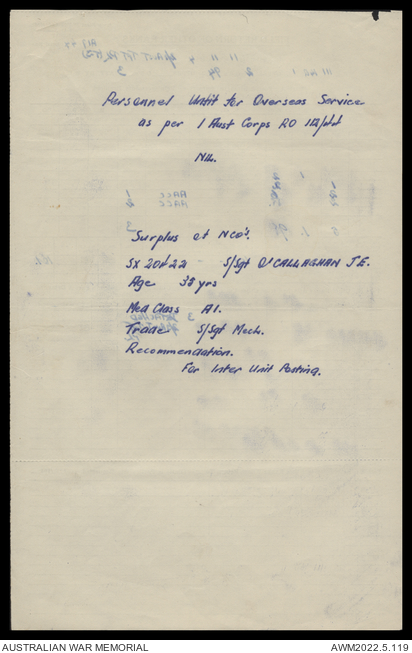 Personnel Unfit for Overseas Service
as per 1 Aust Corps RO
Nil.
Surplus of NCO's.
S/Sgt O'CALLAGHAN J.E.
Age yrs
Med Class A1.
Trade S/Sgt Mech.
Recommendation.
For Inter Unit Posting.
AUSTRALIAN WAR MEMORIAL
AWM2022.5.119